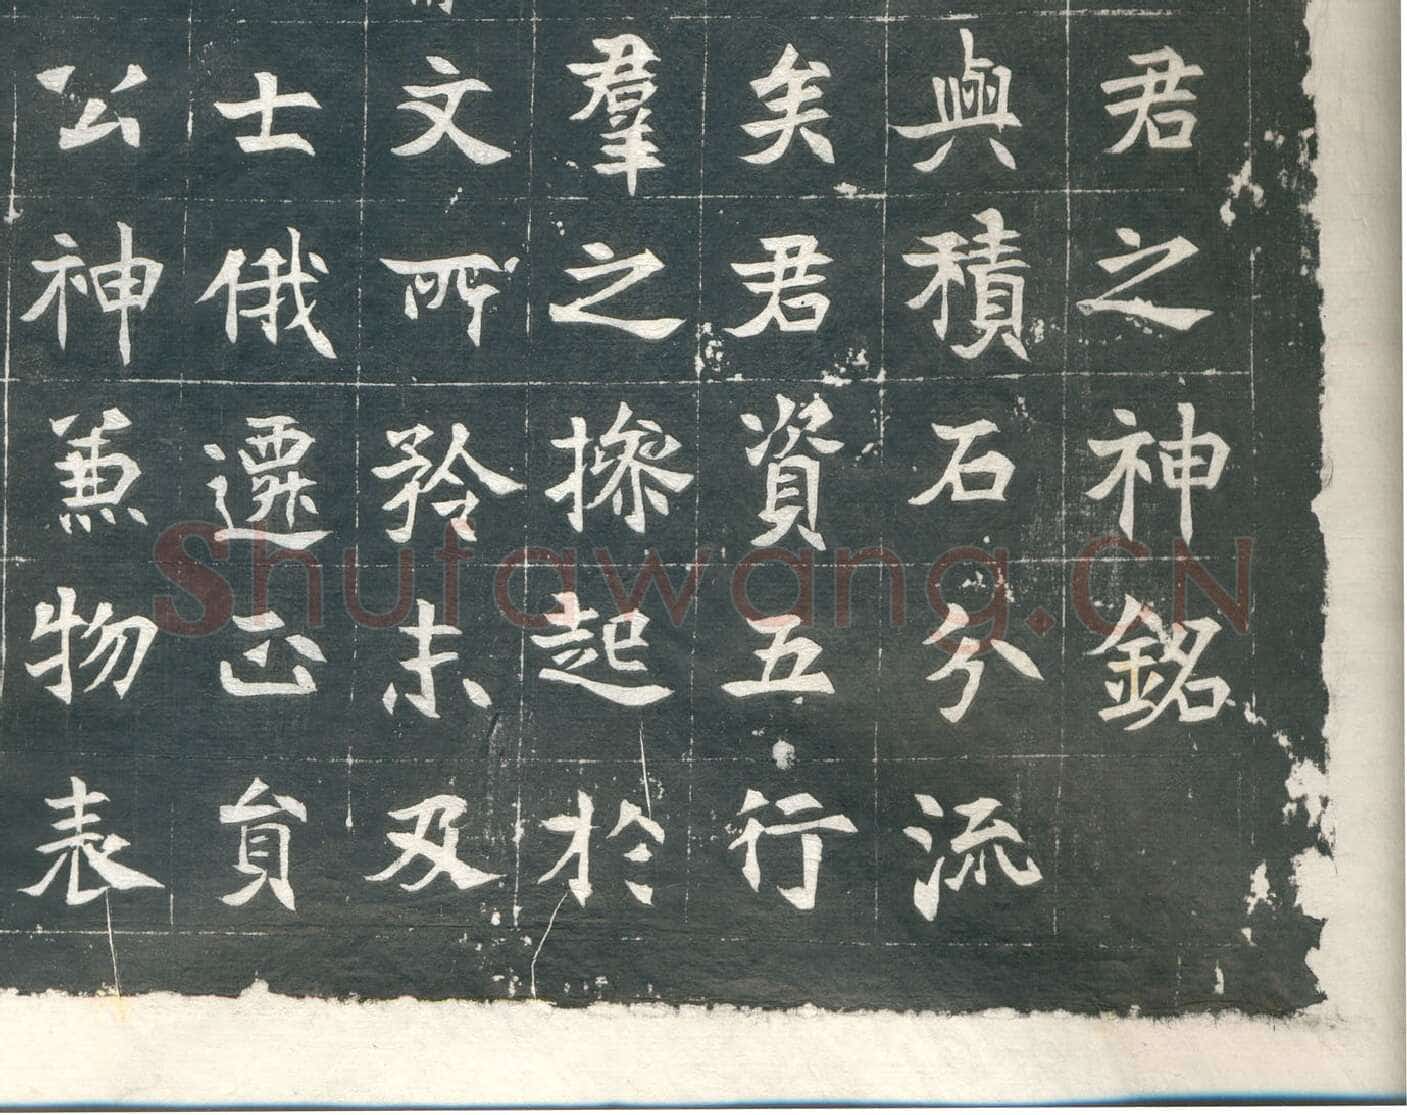 君之神銘
與積石兮流
矣君資五行
羣之摻起於
文所矜未及
士俄遷正員
公神兼物表
Shufawang.CN